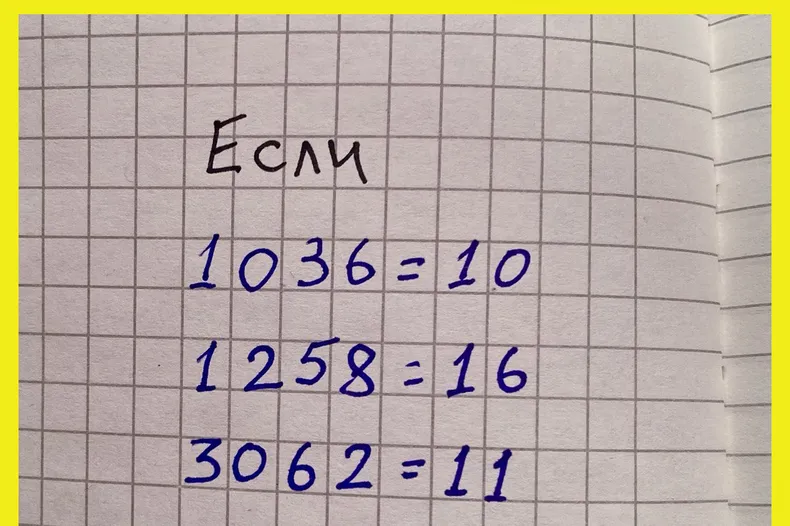 Если
1036=10
1258=16
3062=11